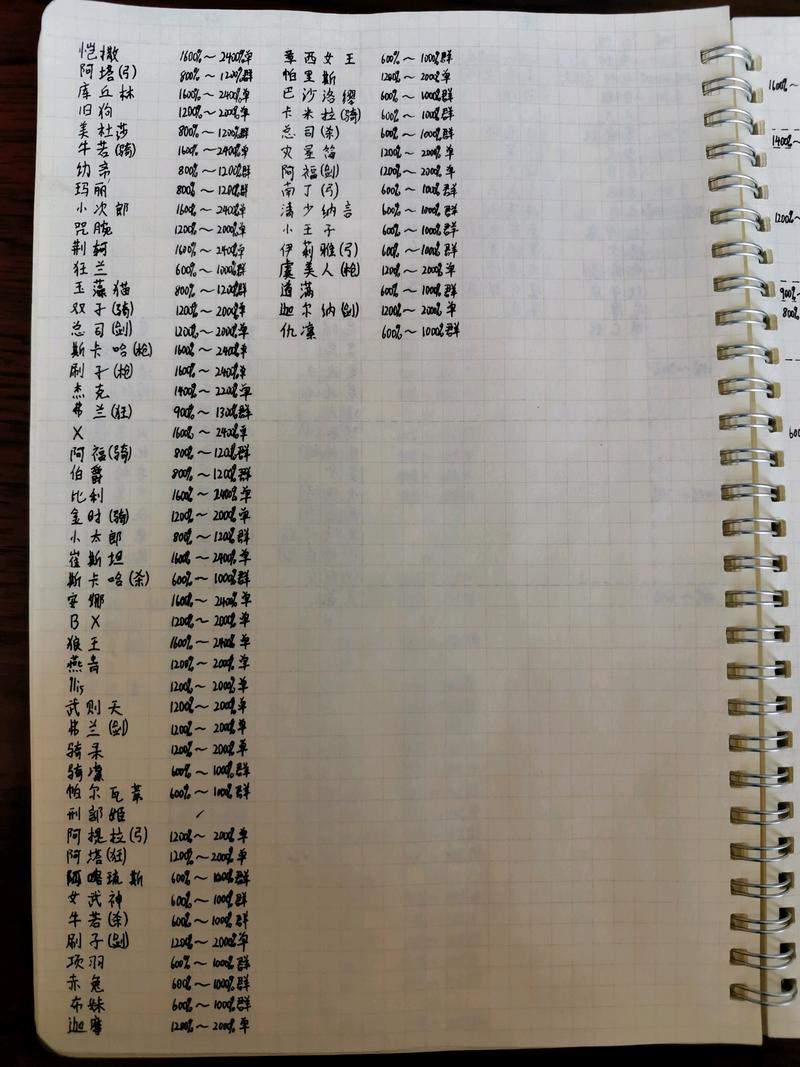 恺撒 1600%～2400%单
阿塔(弓) 800%～1200%群
库丘林 1600%～2400%单
旧狗 1200%～2000%单
美杜莎 800%～1200%群
牛若(骑) 1600%～2400%单
幼帝 800%～1200%群
玛丽 800%～1200%群
小次郎 1600%～2400%单
咒腕 1200%～2000%单
荆轲 1600%～2400%单
狂兰 600%～1000%群
玉藻猫 800%～1200%群
双子(骑) 1200%～2000%单
总司(剑) 1200%～2000%单
斯卡哈(枪) 1600%～2400%单
刷子(枪) 1600%～2400%单
杰克 1400%～2200%单
弗兰(狂) 900%～1300%群
X 1600%～2400%单
阿福(骑) 800%～1200%群
伯爵 800%～1200%群
比利 1600%～2400%单
金时(骑) 1200%～2000%单
小太郎 800%～1200%群
崔斯坦 1600%～2400%单
斯卡哈(杀) 600%～1000%群
安娜 1600%～2400%单
B X 1200%～2000%单
狼王 1600%～2400%单
燕青 1200%～2000%单
1200%～2000%单
武则天 1200%～2000%单
弗兰(剑) 1200%～2000%单
骑呆 1200%～2000%单
骑凛 600%～1000%群
帕尔瓦蒂 600%～1000%群
刑部姬 /
阿提拉(弓) 1200%～2000%单
阿塔(狂) 1200%～2000%单
阿喀琉斯 600%～1000%群
女武神 600%～1000%群
牛若(杀) 600%～1000%群
刷子(剑) 1200%～2000%单
项羽 600%～1000%群
赤兔 600%～1000%群
布妹 600%～1000%群
迦摩 1200%～2000%单
章西女王 600%～1000%群
帕里斯 1200%～2000%单
巴沙洛缪 600%～1000%群
卡米拉(骑) 600%～1000%群
总司(杀) 600%～1000%群
灾星笛 1200%～2000%单
阿福(剑) 1200%～2000%单
南丁(弓) 600%～1000%群
清少纳言 600%～1000%群
小王子 600%～1000%群
伊莉雅(弓) 600%～1000%群
虞美人(枪) 1200%～2000%单
道满 600%～1000%群
迦尔纳(剑) 1200%～2000%单
仇凛 600%～1000%群
1600%～
1400%～
1200%～
900%～
800%
600